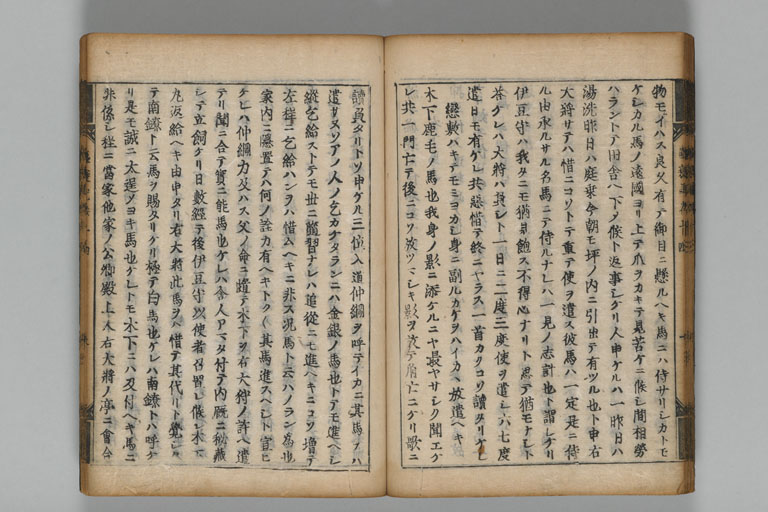 物モイハス良久有テ御目ニ懸ルヘキ馬ニハ侍サリシカトモ
ケシカル馬ノ遠國ヨリ上テ爪ヲカキテ見苦ケニ候シ間相勞
ハラントテ田舎ヘ下ノ候ト返事シケリ人申ケルハ一昨日ハ
湯洗昨日ハ庭乗今朝モ坪ノ内ニ引出テ有ツル也ト申右
大將サテハ惜ニコソトテ重テ使ヲ遣ス彼馬ハ一定是ニ侍
ル由承ルサル名馬ニテ侍ルナレハ一見ノ志計也ト謂レケリ
伊豆守ハ我タニモ猶見飽ス不得心ナリト忍テ猶モナシト
荅ケレハ大將ハ負シト一日ニ二度三度使ヲ遣シ六七度
遣日モ有ケレ共惡惜テ終ニヤラス一首カクコソ讀タリケレ
戀敷ハキテモミヨカシ身ニ副ルカケヲハイカヘ放遣ヘキ
木下鹿毛ノ馬也我身ノ影ニ添ケルニヤ最ヤサシク聞エケ
レ共一門亡テ後ニコソ放ツマシキ影ヲ放テ角亡ニケリ歌ニ
讀負タリトソ申ケル三位入道仲綱ヲ呼テイカニ其馬ヲハ
遣サヌソアノ人ノ乞カケタランニハ金銀ノ馬也トテモ進ヘシ
縦乞給ストテモ世ニ隨習ナレハ追從ニモ進ヘキニコソ増テ
左様ニ乞給ハンヲハ惜ムヘキニ非ス況馬ト云ハノラン為也
家内ニ隱置テハ何ノ詮カ有ヘキトク〱其馬進スヘシト宣ヒ
ケレハ仲綱力及ハス父ノ命ニ隨テ木下ヲ右大將ノ許ヘ遣
テリ聞ニ合テ實ニ能馬也ケレハ舎人アマタ付テ内厩ニ秘藏
シテ立飼ケリ日數經テ後伊豆守以使者召置レ候シ木下
丸返給ヘキ由申タリ右大將此馬ヲハ惜テ其代リト覺シク
テ南鐐ト云馬ヲ賜タリケリ極テ白馬也ケレハ南鐐トハ呼ケ
リ是モ誠ニ太逞ノヨキ馬也ケレトモ木下ニハ及付ヘキ馬ニ
非係シ程ニ當家他家ノ公卿殿上人右大將ノ亭ニ會合